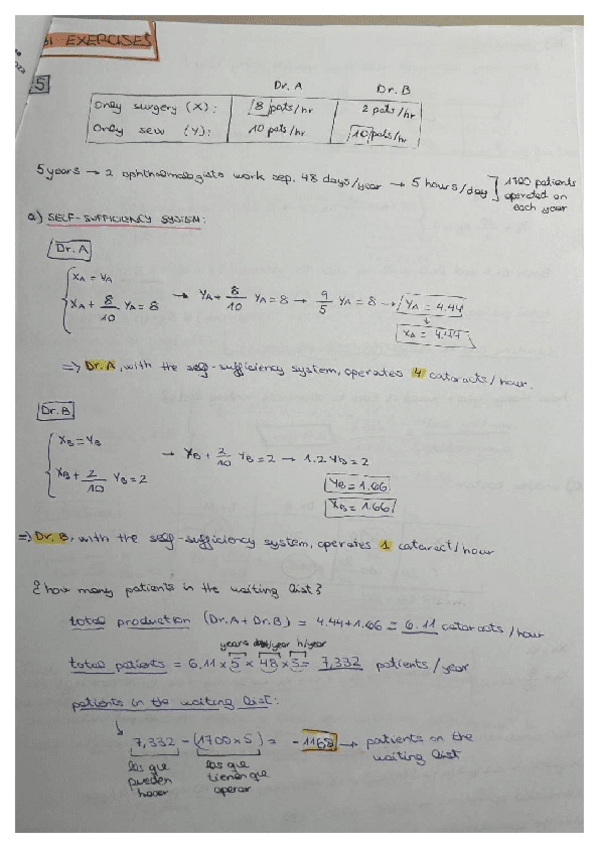 BI EXERCISES
5
Dr. A Dr. B
Only surgery (X): 8 pats/hr 2 pats/hr
Only sew (Y): 10 pats/hr 10 pats/hr
5 years → 2 ophthalmologists work sep. 48 days/year → 5 hours/day ] 1700 patients
operated on
each year
a) SELF-SUFFICIENCY SYSTEM:
Dr. A
XA = YA
XA + 8/10 YA = 8 → YA + 8/10 YA = 8 → 9/5 YA = 8 → YA = 4.44
XA = 4.44
=> Dr. A, with the self-sufficiency system, operates 4 cataracts/hour.
Dr. B
XB = YB
XB + 2/10 YB = 2 → YB + 2/10 YB = 2 → 1.2 YB = 2
YB = 1.66
XB = 1.66
=> Dr. B, with the self-sufficiency system, operates 1 cataract/hour
¿how many patients in the waiting list?
total production (Dr. A + Dr. B) = 4.44 + 1.66 = 6.11 cataracts/hour
years /year h/year
total patients = 6.11 x 5 x 48 x 5 = 7,332 patients/year
patients in the waiting list:
7,332 - (1700 x 5) = -1168 → patients on the
waiting list
los que los que
pueden tienen que
hacer operar